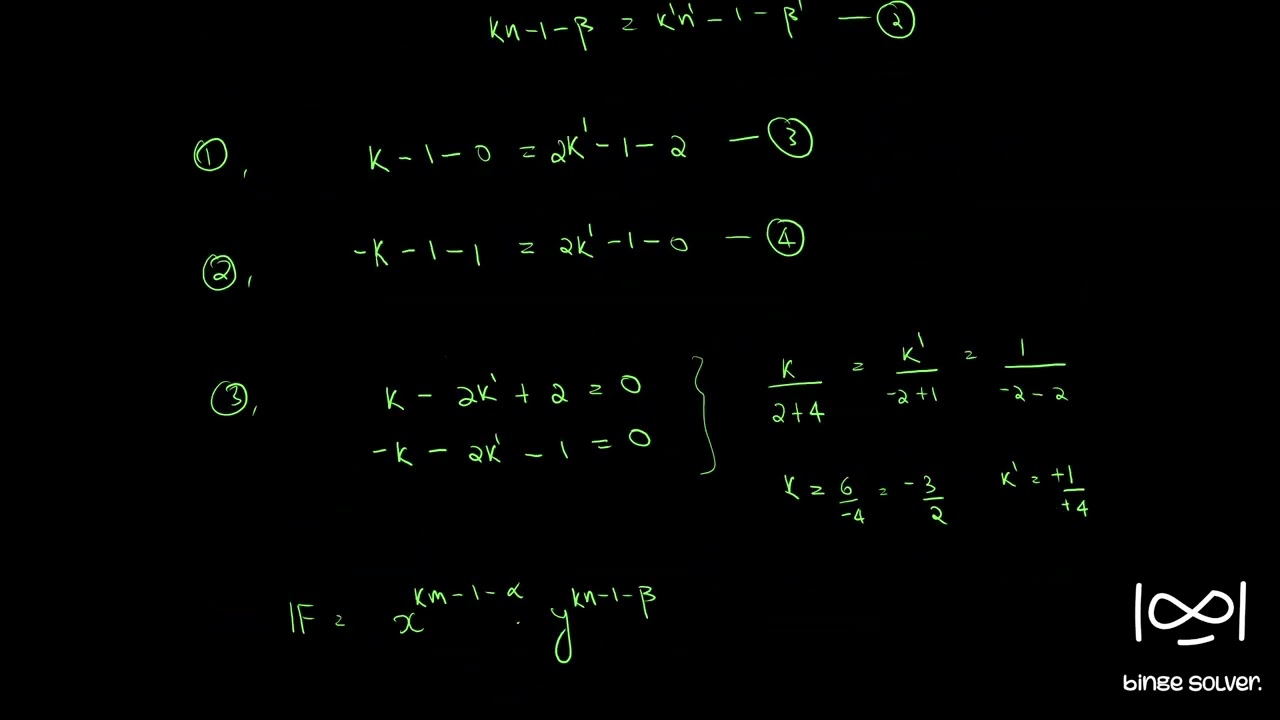 kn-1-β = k'n'-1-β' — ②
①, k-1-0 = 2k'-1-2 — ③
②, -k-1-1 = 2k'-1-0 — ④
③, k - 2k' + 2 = 0
-k - 2k' - 1 = 0
k/2+4 = k'/-2+1 = 1/-2-2
k = 6/-4 = -3/2 k' = +1/+4
IF = x^km-1-α · y^kn-1-β
binge solver.